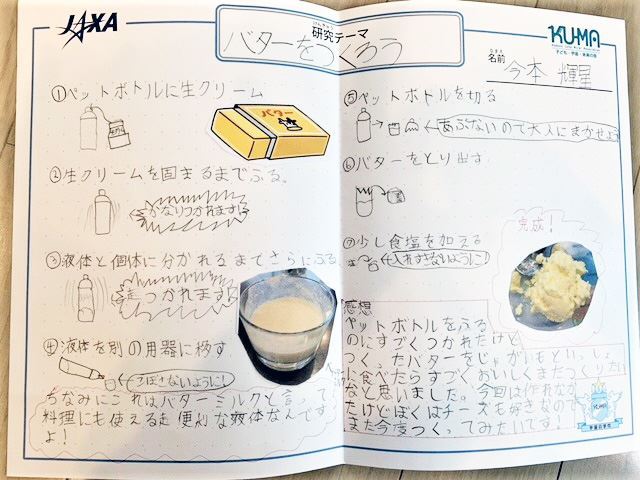 JAXA
けんきゅう
研究テーマ
バターをつくろう
KU-MA
子ども・宇宙・未来の会
なまえ
名前
今本 輝星
①ペットボトルに生クリーム
バター
②生クリームを固まるまでふる。
かなりつかれます!
③液体と個体に分かれるまでさらにふる、
つかれます!
④液体を別の用器に移す
こぼさないように!
ちなみにこれはバターミルクと言って
料理にも使える超便利な液体なんです
よ!
⑤ペットボトルを切る
あぶないので大人にまかせよう
⑥バターをとり出す
⑦少し食塩を加える
入れすぎないように!
完成!
感想
ペットボトルをふる
のにすごくつかれたけど
つくったバターをじゃがいもといっしょ
に食べたらすごくおいしくまたつくりたい
なと思いました。今回は作れなか
たけどぼくはチーズも好きなので
また今度つくってみたいです!
KU-MA
宇宙の学校